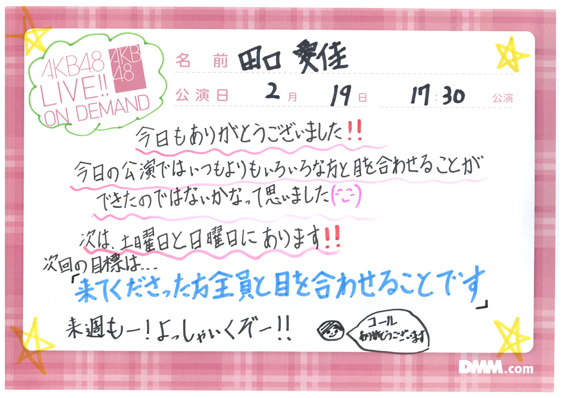 AKB48
LIVE!!
ON DEMAND
AKB
48
名前 田口 愛佳
公演日 2月 19日 17:30 公演
今日もありがとうございました!!
今日の公演ではいつもよりもいろいろな方と目を合わせることが
できたのではないかなって思いました(-ᴗ-)
次は、土曜日と日曜日にあります!!
次回の目標は...
「来てくださった方全員と目を合わせることです」
来週もー!よっしゃいくぞー!!
コール
ありがとうございます
DMM.com